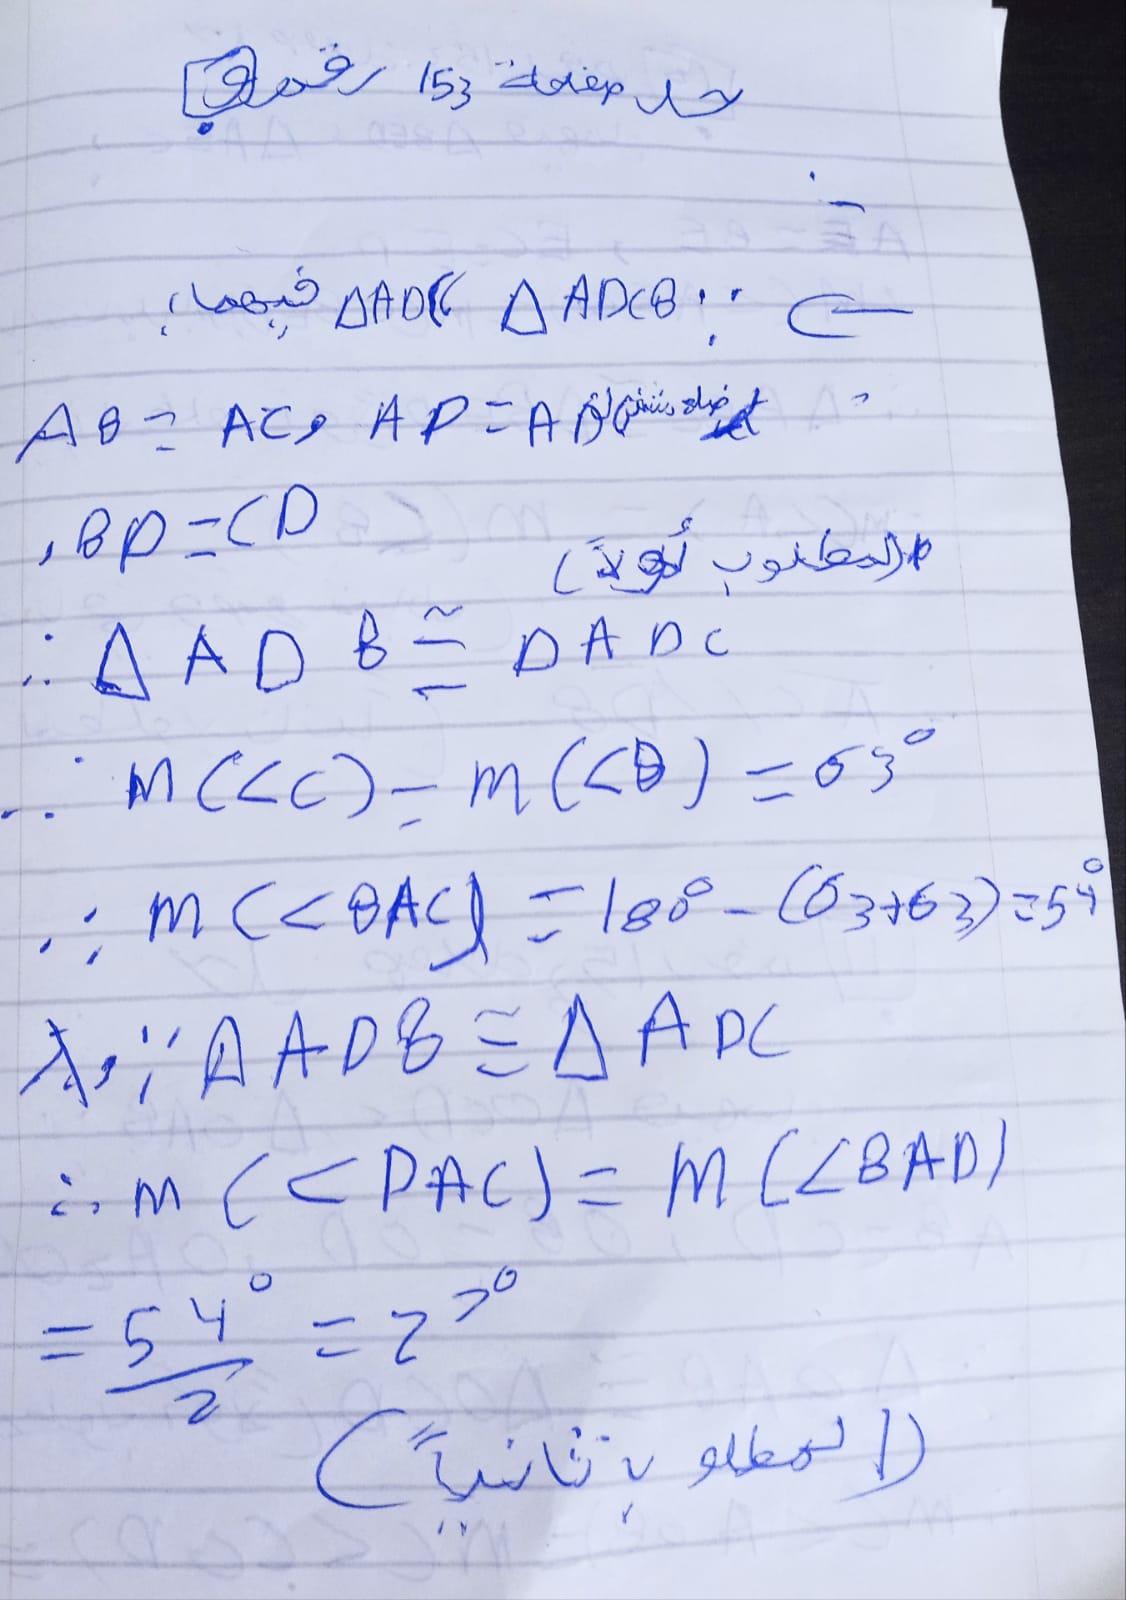 حل صفحة 153 رقم
∵ △ADCB △ADC فيهما:
AB = AC و AD = AD ضلع مشترك
, BD = CD
(المطلوب أولاً)
∴ △ADB ≅ △ADC
∴ m(<C) = m(<B) = 63°
∴ m(<BAC) = 180° - (63+63) = 54°
∵ △ADB ≅ △ADC
∴ m(<DAC) = m(<BAD)
= 54°/2 = 27°
(المطلوب ثانياً)